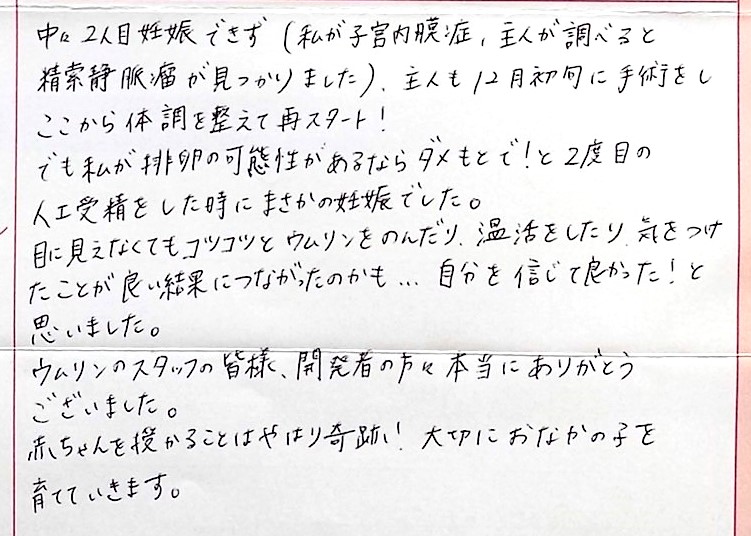 中々2人目妊娠できず(私が子宮内膜症、主人が調べると
精索静脈瘤が見つかりました)、主人も12月初旬に手術をし
ここから体調を整えて再スタート!
でも私が排卵の可能性があるならダメもとで!と2度目の
人工受精をした時にまさかの妊娠でした。
目に見えなくてもコツコツとウムリンをのんだり、温活をしたり、気をつけ
たことが良い結果につながったのかも…自分を信じて良かった!と
思いました。
ウムリンのスタッフの皆様、開発者の方々本当にありがとう
ございました。
赤ちゃんを授かることはやはり奇跡!大切におなかの子を
育てていきます。